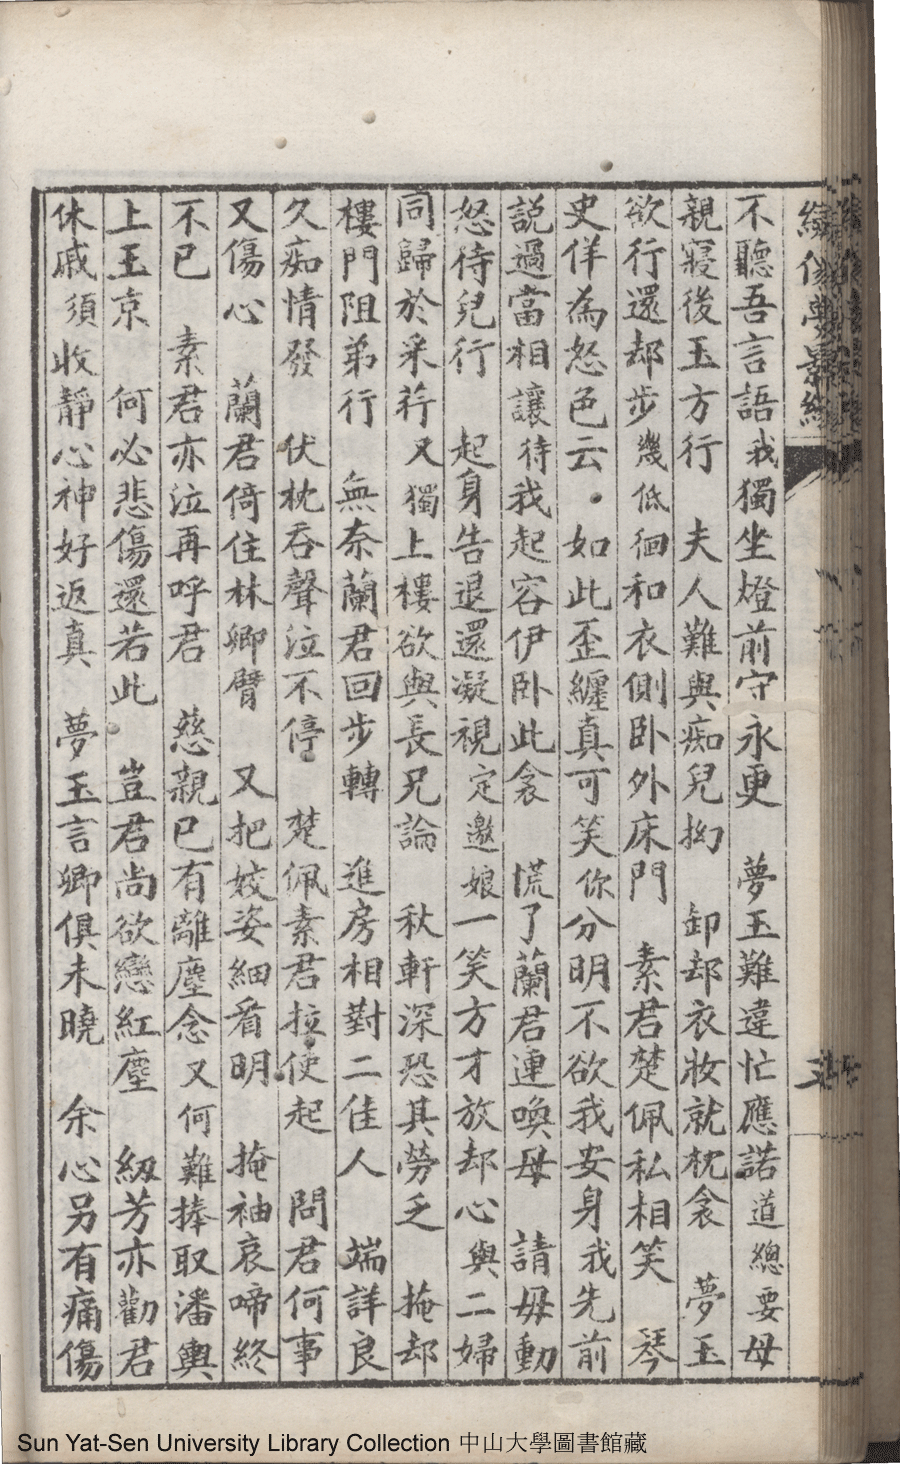 不聽吾言語我獨坐燈前守永更　夢玉難違忙應諾道總要母
親寢後玉方行　夫人難與痴兒拗　卸却衣妝就枕衾　夢玉
欲行還却步幾低徊和衣側卧外床門　素君楚佩私相笑　琴
史佯為怒色云．如此歪纏真可笑你分明不欲我安身我先前
説過當相讓待我起容伊卧此衾　慌了蘭君連喚母　請母動
怒待兒行　起身告退還凝視定邀娘一笑方才放却心與二婦
同歸於采荇又獨上樓欲與長兄論　秋軒深恐其勞乏　掩却
樓門阻弟行　無奈蘭君回步轉　進房相對二佳人　端詳良
久痴情發　伏枕吞聲泣不停　楚佩素君拉使起　問君何事
又傷心　蘭君倚住林卿臂　又把姣姿細看明　掩袖哀啼終
不已　素君亦泣再呼君　慈親已有離塵念又何難捧取潘輿
上玉京　何必悲傷還若此　豈君尚欲戀紅塵　紉芳亦勸君
休戚須收靜心神好返真　夢玉言卿俱未曉　余心另有痛傷
Sun Yat-Sen University Library Collection 中山大學圖書館藏